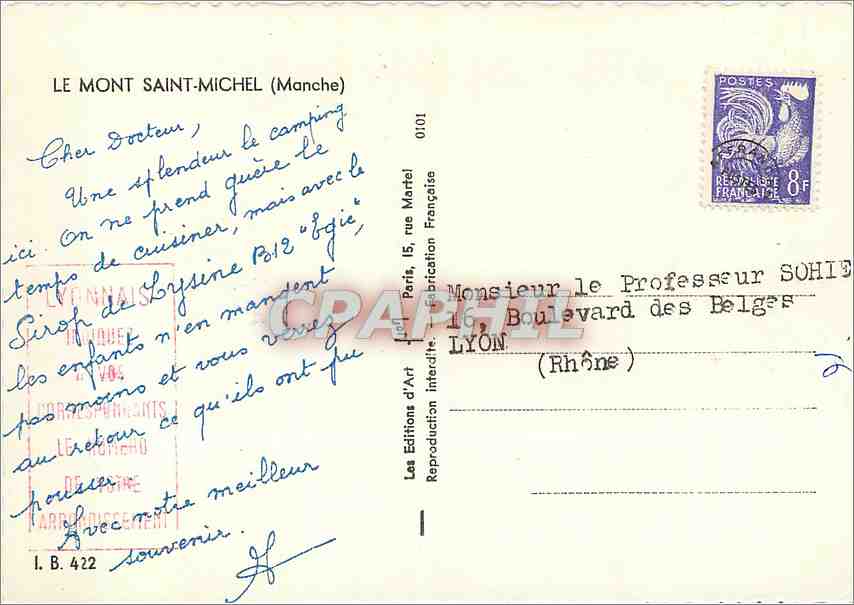 LE MONT SAINT-MICHEL (Manche)
Cher Docteur,
Une splendeur le camping
ici. On ne prend guère le
temps de cuisiner, mais avec le
Sirop de Lysine B12 "Egic",
les enfants n'en mandent
pas moins et vous verrez
au retour ce qu'ils ont pu
pousser.
Avec notre meilleur
souvenir.
LYONNAIS
INDIQUEZ
A VOS
CORRESPONDANTS
LE NUMERO
DE VOTRE
ARRONDISSEMENT
I. B. 422
Les Editions d'Art Yvon Paris, 15, rue Martel
Reproduction interdite. Fabrication Française
0101
POSTES
AFFRANCHts
POSTES
REPUBLIQUE
FRANÇAISE
8F
Monsieur le Professeur SOHIE
16, Boulevard des Belges
LYON
(Rhône)
CPAPHIL